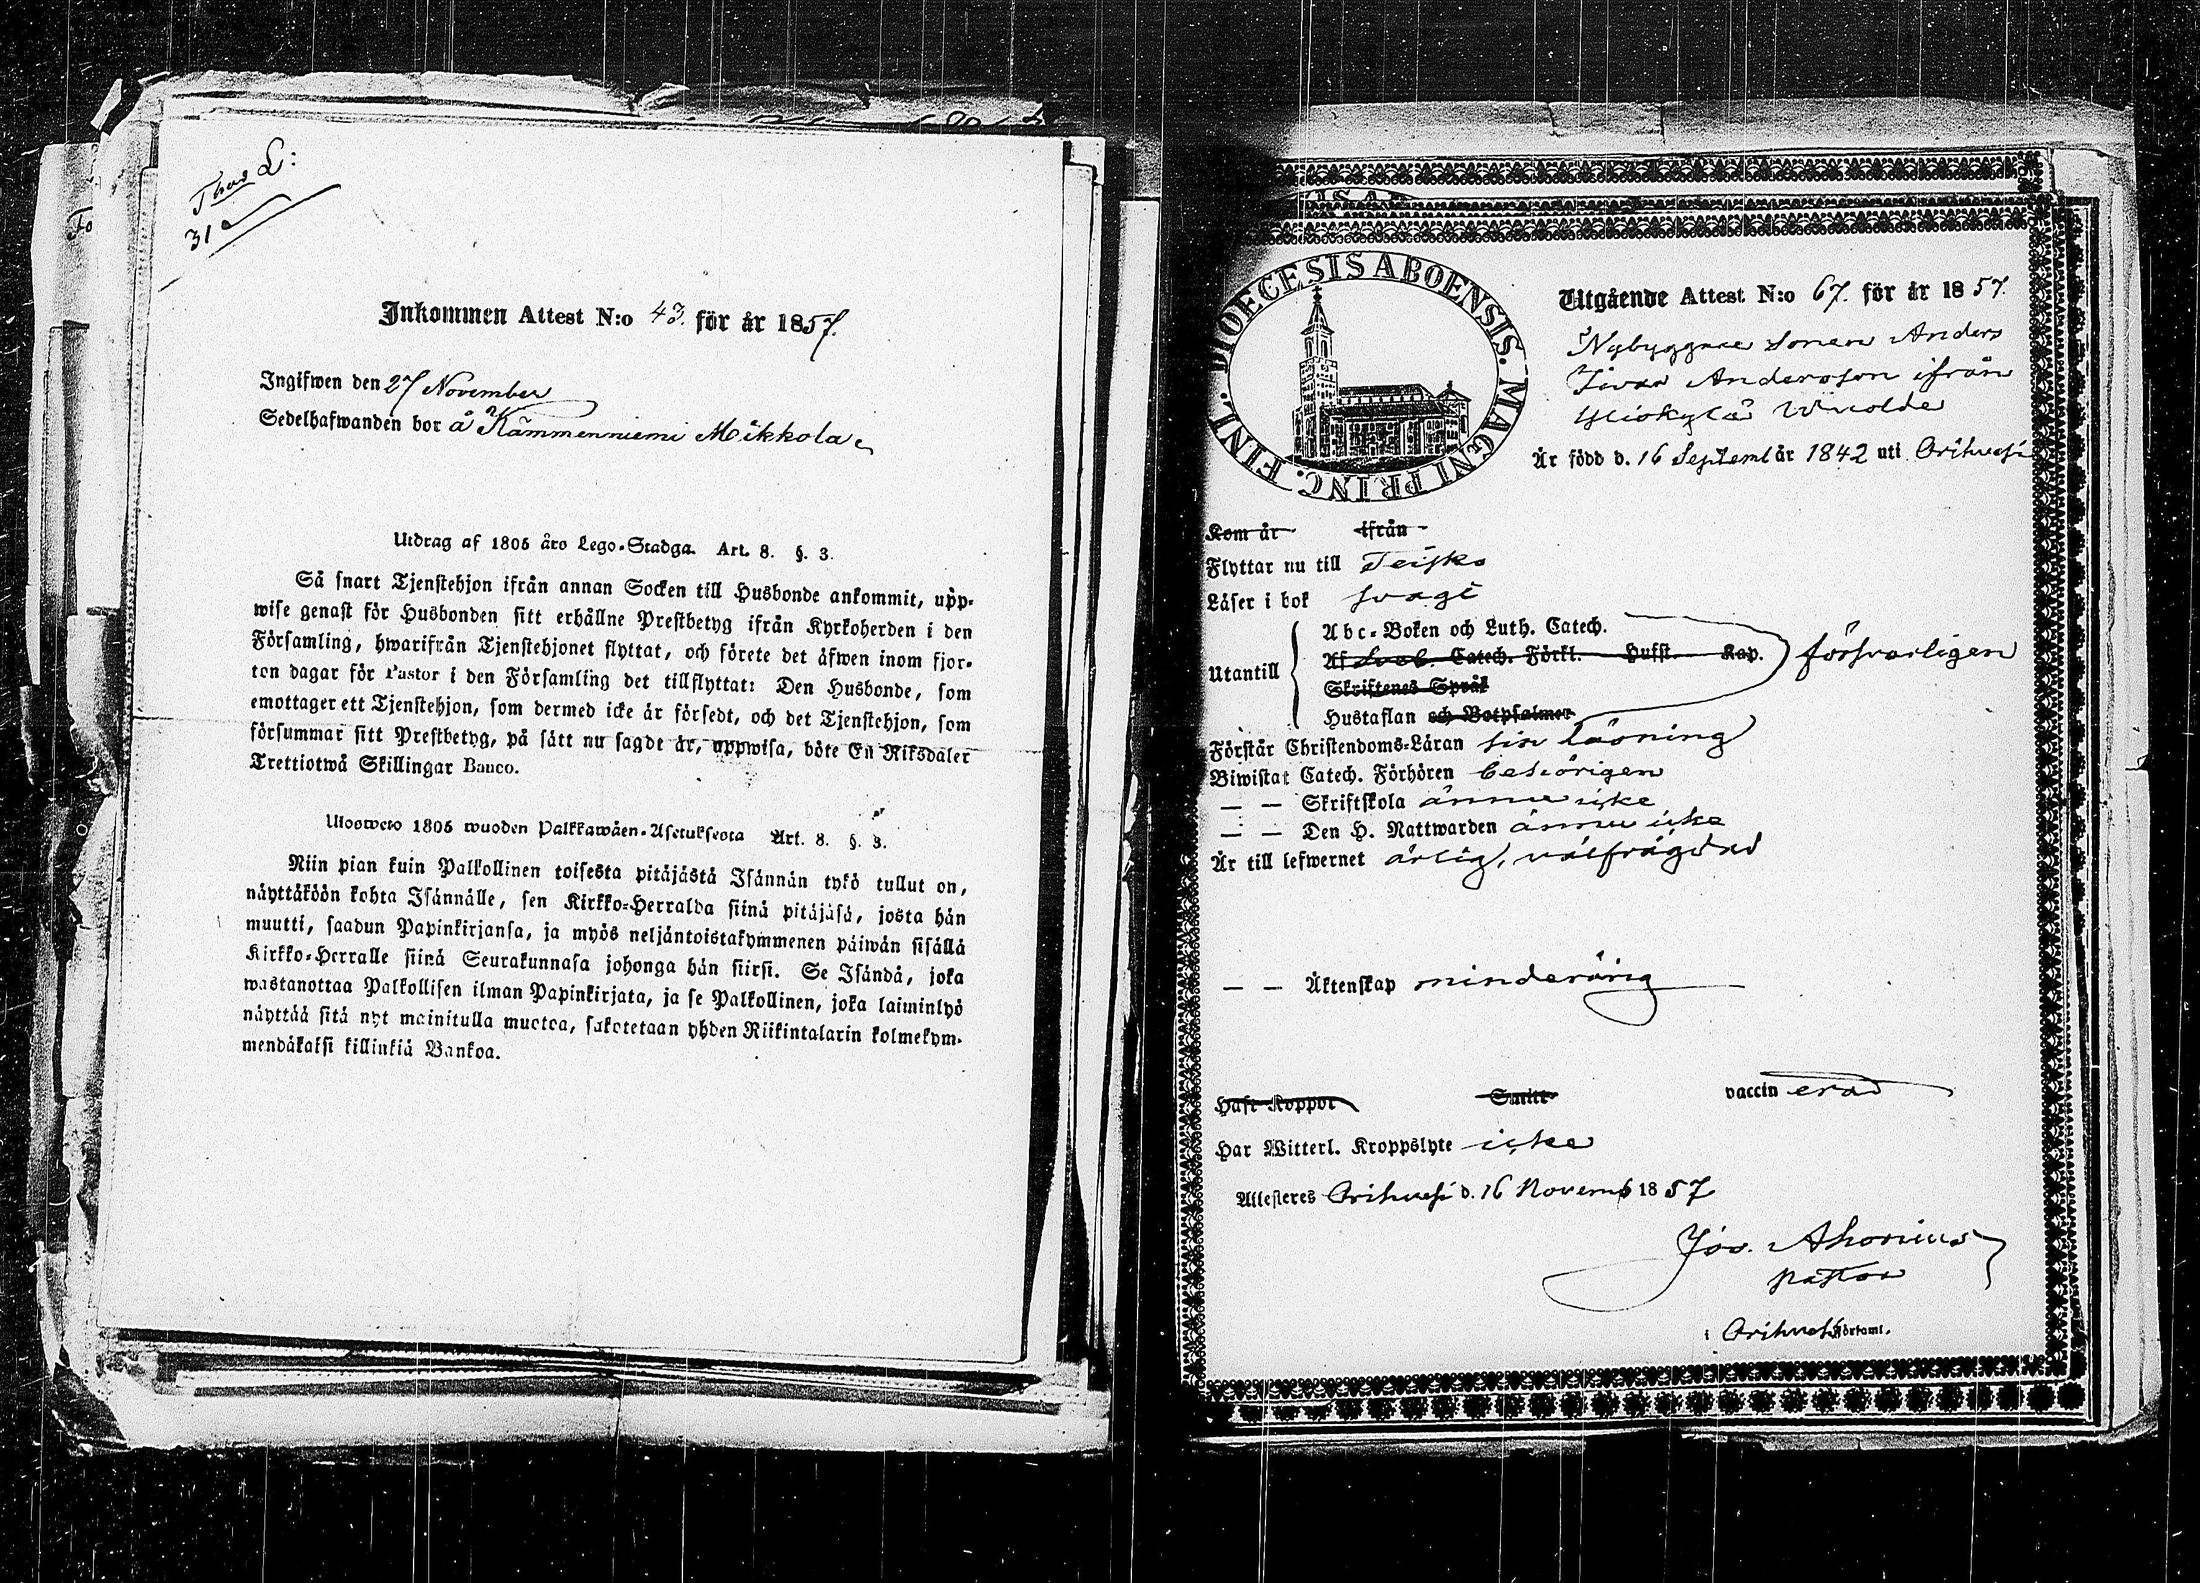 L:
31
Inkommen Attest N:o 43. för år 1857.
Ingifwen den 27 November
Sedelhafwanden bor å Kämmenniemi Mikkola
Utdrag af 1805 års Lego-Stadga. Art. 8. §. 3.
Så snart Tjenstehjon ifrån annan Socken till Husbonde ankommit, upp-
wise genast för Husbonden sitt erhållne Prestbetyg ifrån Kyrkoherden i den
Församling, hwarifrån Tjenstehjonet flyttat, och förete det äfwen inom fjor-
ton dagar för Pastor i den Församling det tillflyttat: Den Husbonde, som
emottager ett Tjenstehjon, som dermed icke är försedt, och det Tjenstehjon, som
försummar sitt Prestbetyg, på sätt nu sagdt är, uppwisa, böte En Riksdaler
Trettiotwå Skillingar Banco.
Ulosweto 1805 wuoden Palkkawäen-Asetuksesta Art. 8. §. 3.
Niin pian kuin Palkollinen toisesta pitäjästä Isännän tykö tullut on,
näyttäköön kohta Isännälle, sen Kirkko-Herralda siinä pitäjäsä, josta hän
muutti, saadun Papinkirjansa, ja myös neljäntoistakymmenen päiwän sisällä
Kirkko-Herralle siinä Seurakunnasa johonga hän siirsi. Se Isändä, joka
wastanottaa Palkollisen ilman Papinkirjata, ja se Palkollinen, joka laiminlyö
näyttää sitä nyt mainitulla muotoa, sakotetaan yhden Riikintalarin kolmekym-
mendäkaksi killinkiä Bankoa.
DIOECESIS ABOENSIS. MAGNI PRINC. FINL.
Utgående Attest N:o 67. för år 1857.
Nybyggare Sonen Anders
Andersson ifrån
Är född d. 16 Septemb år 1842 uti Orihvesi
Kom år ifrån
Flyttar nu till Teisko
Läser i bok svagt
Utantill
Abc-Boken och Luth. Catech.
Af Sveb. Catech. Förkl. Hufst. Kap.
försvarligen
Skriftenes Språk
Hustaflan och Botpsalmer
Förstår Christendoms-Läran sin läsning
Biwistat Catech. Förhören behörigen
— — Skriftskola ännu icke
— — Den H. Nattwarden ännu icke
Är till lefwernet ärlig, välfrägdad
— — Äktenskap minderårig
Haft Koppor Smitt vaccinerad
Har Witterl. Kroppslyte icke
Attesteres Orihvesi d. 16 Novemb 1857
Jos. Ahonius
pastor
i Orihvesi Församl.